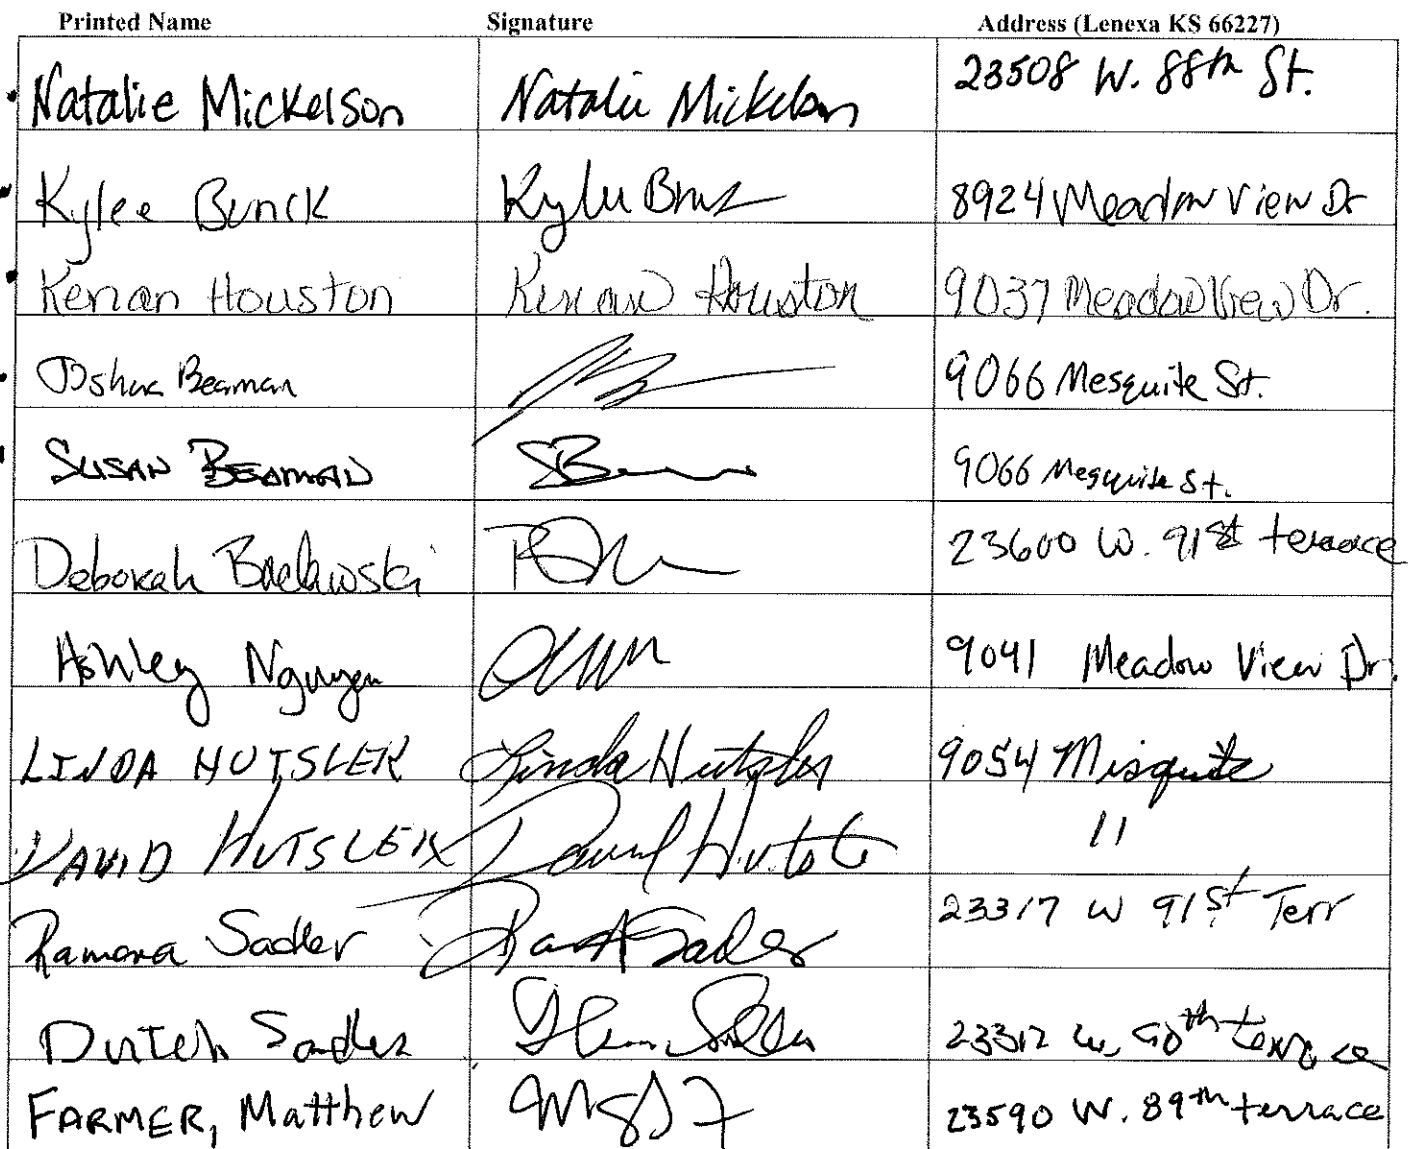 Printed Name Signature Address (Lenexa KS 66227)
Natalie Mickelson Natalie Mickelson 23508 W. 88th St.
Kylee Bunck Kylee 8924 Meadow View Dr
Kenan Houston Kenan Houston 9037 Meadow View Dr.
Joshua Beaman 9066 Mesquite St.
SUSAN BEAMAN 9066 Mesquite St.
Deborah 23600 W. 91st terrace
Ashley Nguyen 9041 Meadow View Dr.
LINDA HUTSLER Linda Hutsler 9054 Misquite
DAVID HUTSLER David Hutsler 11
Ramona Sadler Sadler 23317 W 91st Terr
Dutch Sadler Glenn Sadler W. 90th terrace
FARMER, Matthew 23590 W. 89th terrace